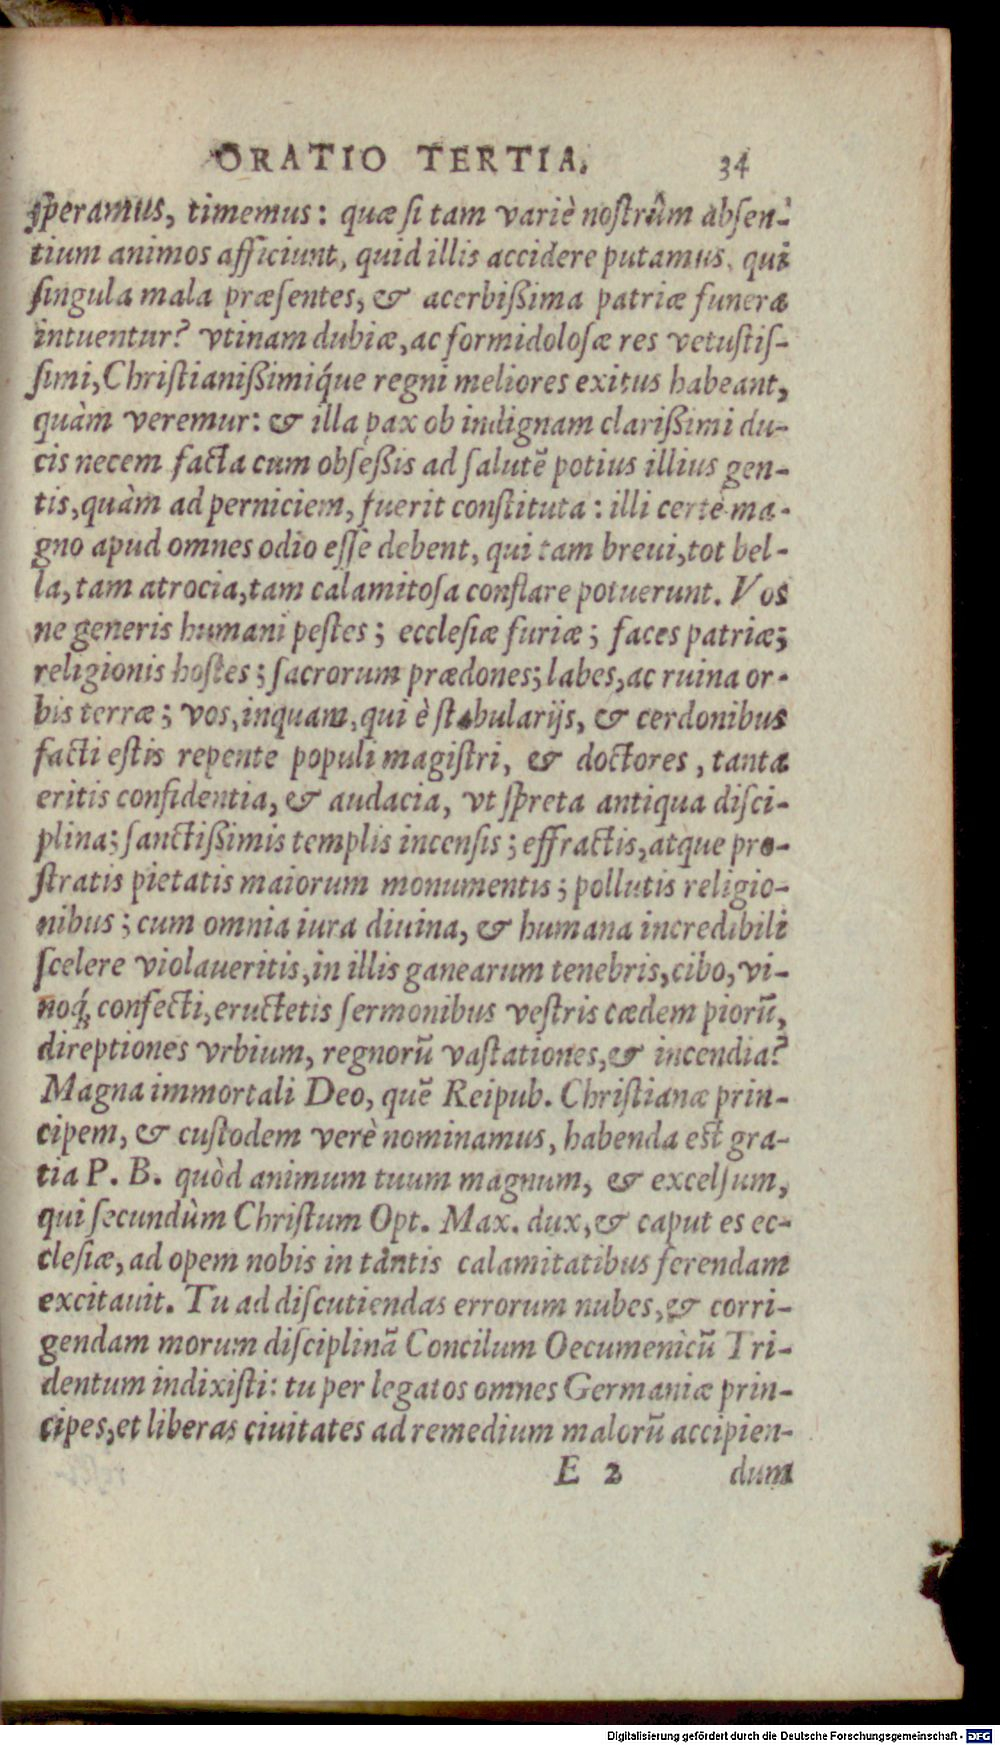 ORATIO TERTIA. 34
ſperamus, timemus: quæ ſi tam variè noſtrûm abſen-
tium animos afficiunt, quid illis accidere putamus, qui
ſingula mala præſentes, & acerbiſſima patriæ funera
intuentur? vtinam dubiæ, ac formidoloſæ res vetuſtiſ-
ſimi, Chriſtianiſſimiq́ue regni meliores exitus habeant,
quàm veremur: & illa pax ob indignam clariſſimi du-
cis necem facta cum obſeſſis ad ſalutē potius illius gen-
tis, quàm ad perniciem, fuerit conſtituta: illi certè ma-
gno apud omnes odio eſſe debent, qui tam breui, tot bel-
la, tam atrocia, tam calamitoſa conflare potuerunt. Vos
ne generis humani peſtes; eccleſiæ furiæ; faces patriæ;
religionis hoſtes; ſacrorum prædones; labes, ac ruina or-
bis terræ; vos, inquam, qui è ſtabularijs, & cerdonibus
facti eſtis repente populi magiſtri, & doctores, tanta
eritis confidentia, & audacia, vt ſpreta antiqua diſci-
plina; ſanctiſſimis templis incenſis; effractis, atque pro-
ſtratis pietatis maiorum monumentis; pollutis religio-
nibus; cum omnia iura diuina, & humana incredibili
ſcelere violaueritis, in illis ganearum tenebris, cibo, vi-
noq́; confecti, eructetis ſermonibus veſtris cædem piorū,
direptiones vrbium, regnorū vaſtationes, & incendia?
Magna immortali Deo, quē Reipub. Chriſtianæ prin-
cipem, & cuſtodem verè nominamus, habenda eſt gra-
tia P. B. quòd animum tuum magnum, & excelſum,
qui ſecundùm Chriſtum Opt. Max. dux, & caput es ec-
cleſiæ, ad opem nobis in tantis calamitatibus ferendam
excitauit. Tu ad diſcutiendas errorum nubes, & corri-
gendam morum diſciplinā Concilum Oecumenicū Tri-
dentum indixiſti: tu per legatos omnes Germaniæ prin-
cipes, et liberas ciuitates ad remedium malorū accipien-
E 2 dum
Digitalisierung gefördert durch die Deutsche Forschungsgemeinschaft - DFG